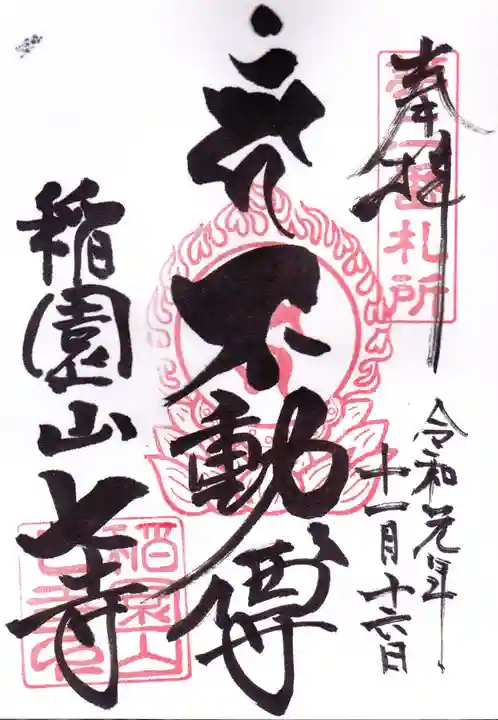 奉拝
第一番札所
令和元年
十一月十六日
不動尊
稲園山七寺
稲園山